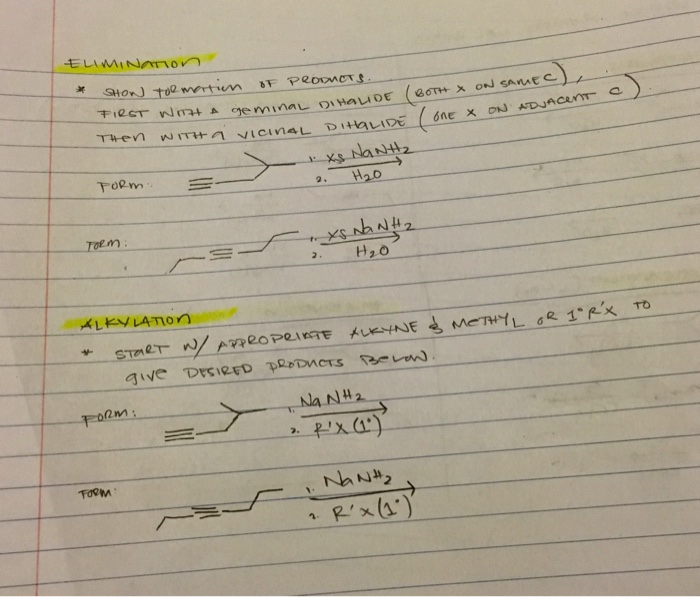 ELIMINATION
* SHOW FORMATION OF PRODUCTS.
FIRST WITH A GEMINAL DIHALIDE (BOTH X ON SAME C),
THEN WITH A VICINAL DIHALIDE (ONE X ON ADJACENT C)
FORM:
1. XS NaNH2
2. H2O
FORM:
1. XS NaNH2
2. H2O
ALKYLATION
* START W/ APPROPRIATE ALKYNE & METHYL OR 1° R'X TO
GIVE DESIRED PRODUCTS BELOW.
FORM:
1. NaNH2
2. R'X (1°)
FORM
1. NaNH2
2. R'X (1°)